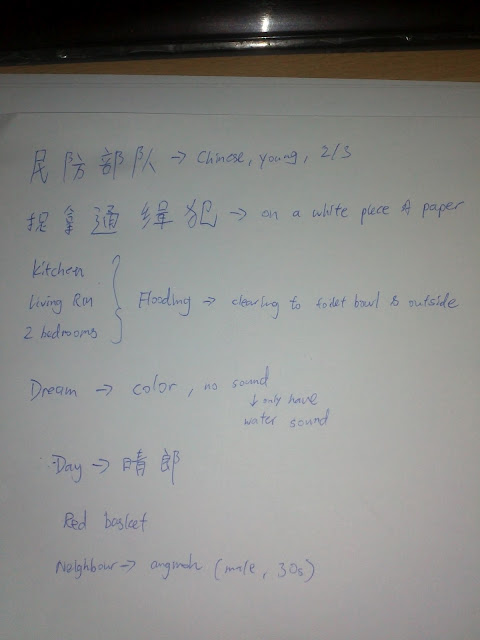 民防部队 → Chinese, young, 2/3
捉拿通缉犯 → on a white piece of paper
Kitchen
Living RM
2 bedrooms
Flooding → clearing to toilet bowl & outside
Dream → color, no sound
↓ only have
water sound
Day → 晴郎
Red basket
Neighbour → angmoh (male, 30s)